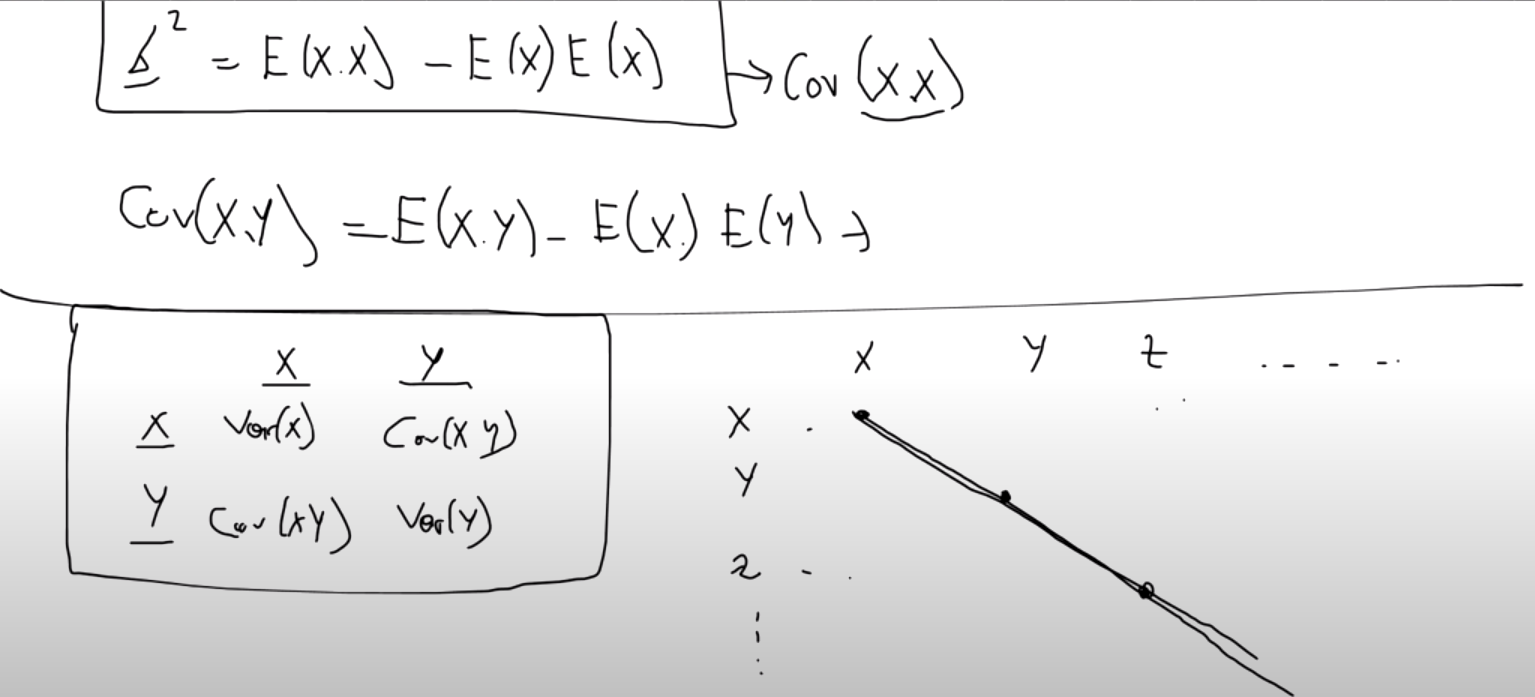 s² = E(X.X) - E(X) E(X) → Cov(X X)
Cov(X,Y) = E(X.Y) - E(X) E(Y) →
X Y
X Var(X) Cov(X Y)
Y Cov(XY) Var(Y)
X Y Z ....
X
Y
Z